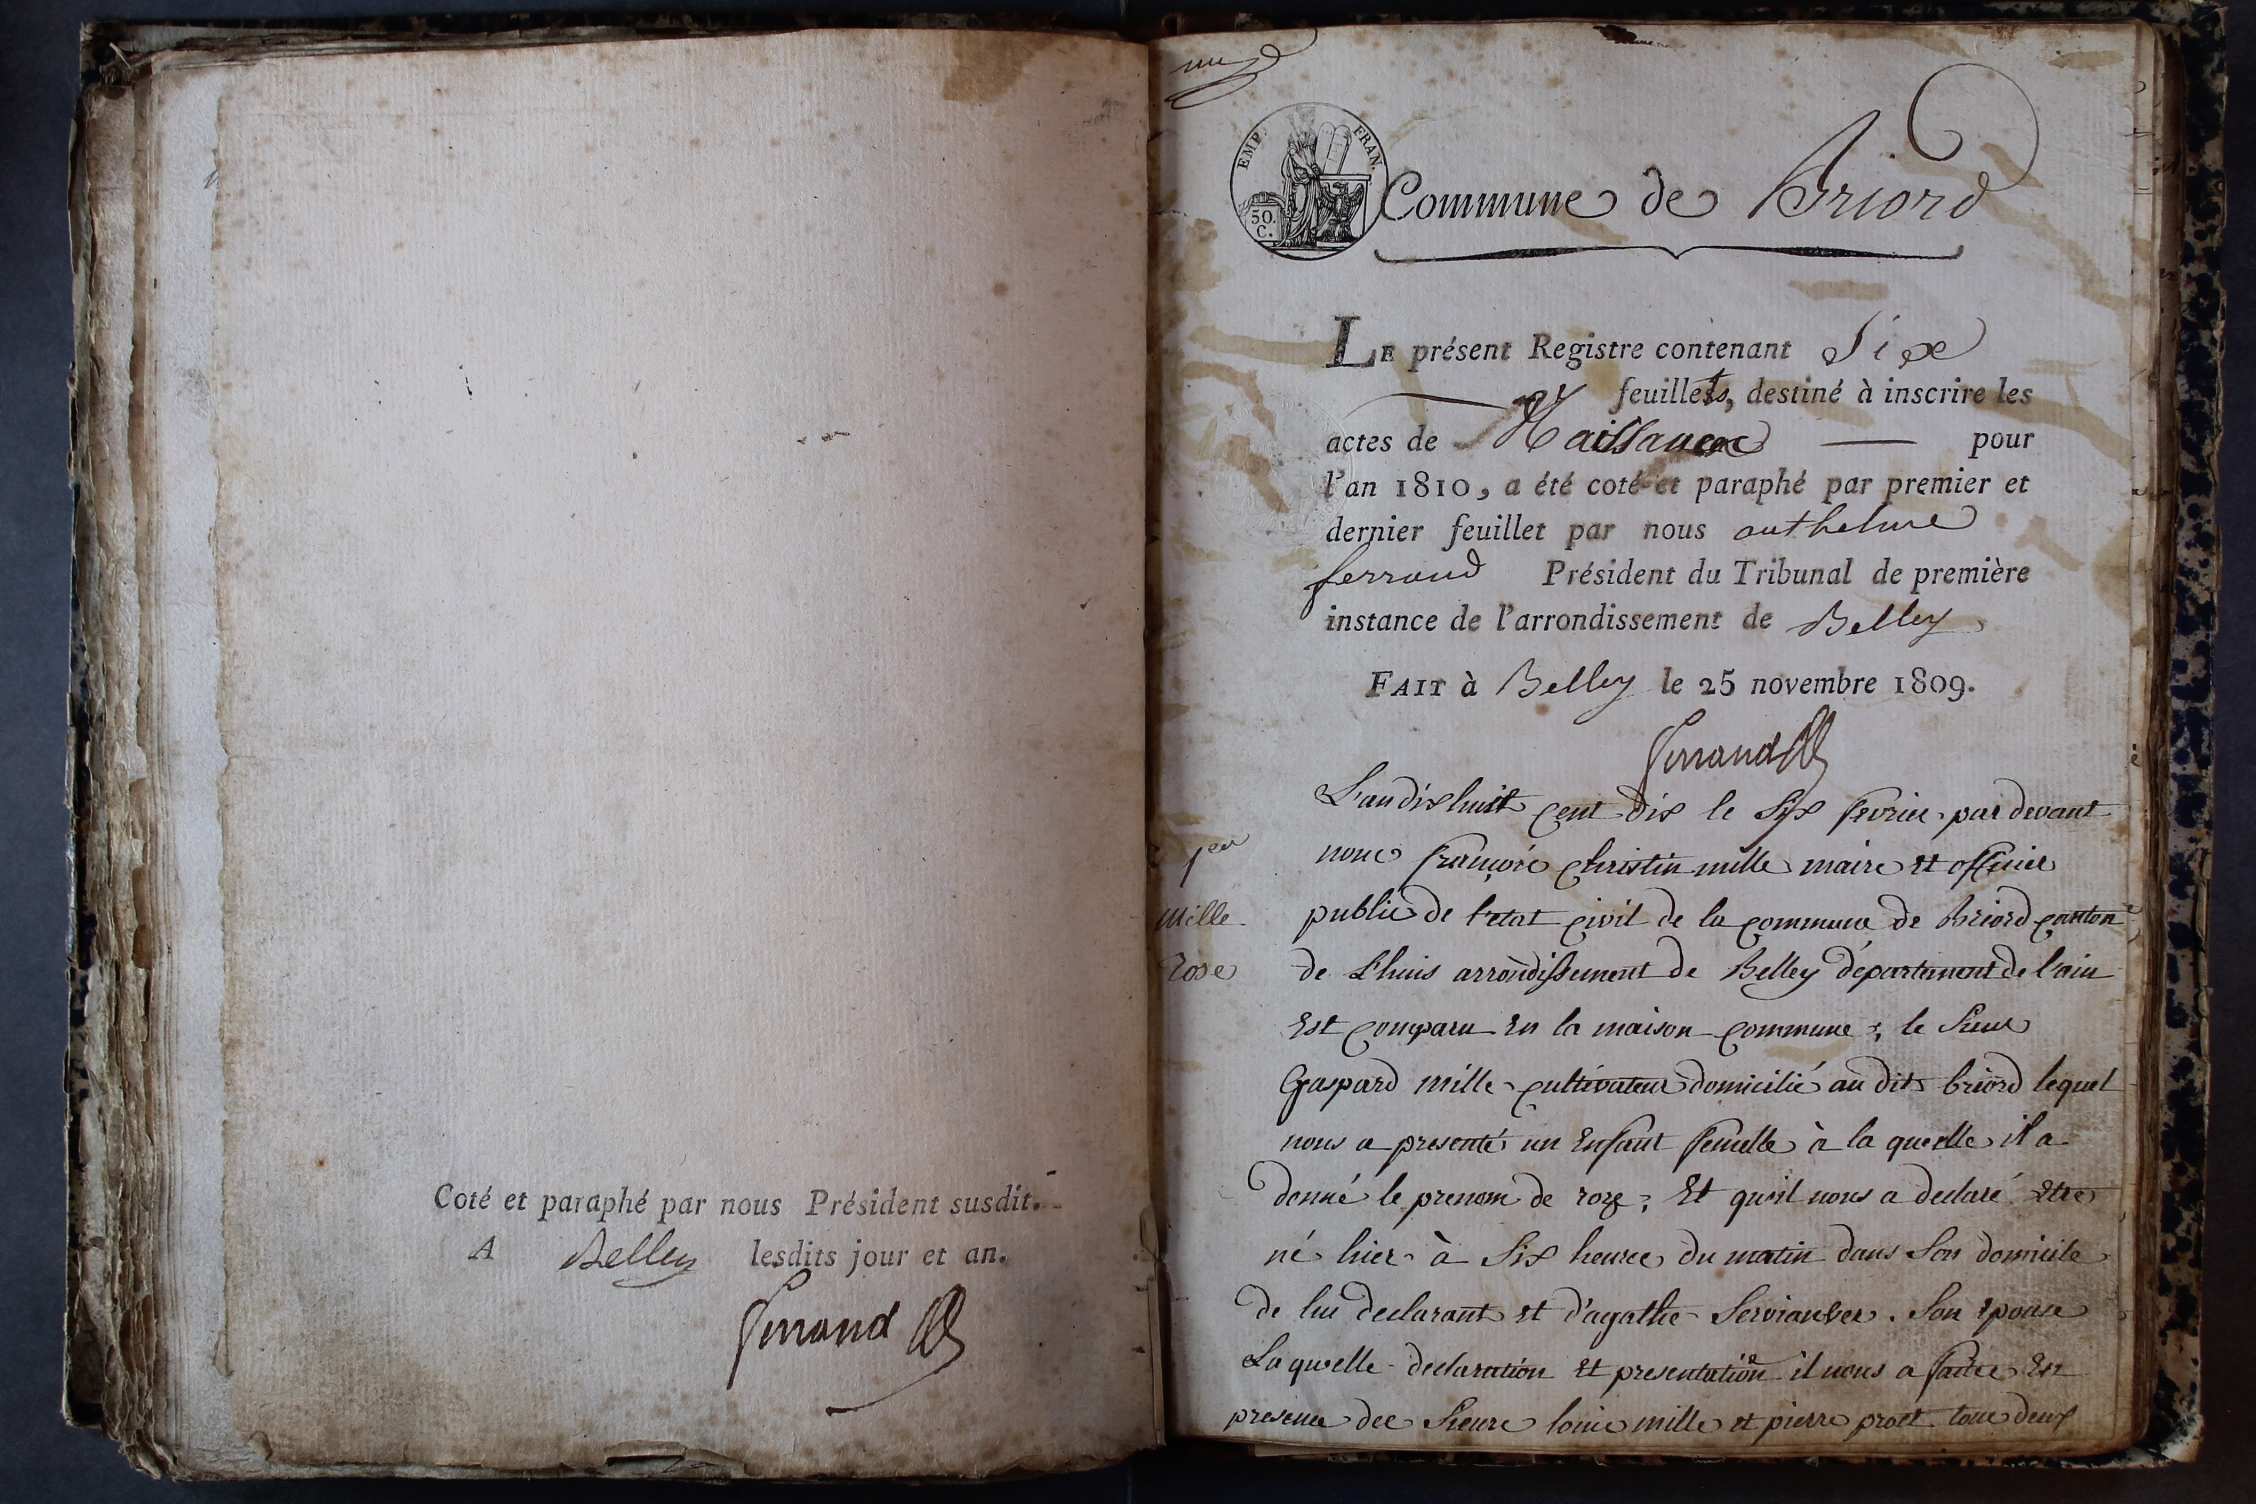 Coté et paraphé par nous Président susdit.
A Belley lesdits jour et an.
Ferrand
EMP. FRAN.
50.
C.
Commune de Briord
LE présent Registre contenant Six
feuillets, destiné à inscrire les
actes de Naissance pour
l'an 1810, a été coté et paraphé par premier et
dernier feuillet par nous anthelme
ferrand Président du Tribunal de première
instance de l'arrondissement de Belley
FAIT à Belley le 25 novembre 1809.
Ferrand
1er
Mille
Rose
L'an dix huit cent dix le Six fevrier par devant
nous françois christin mille maire et officier
public de l'etat civil de la commune de Briord canton
de Lhuis arrondissement de Belley département de l'ain
Est comparu En la maison commune, le Sieur
Gaspard mille cultivateur domicilié au dit briord lequel
nous a presenté un Enfant femelle à la quelle il a
donné le prenom de roze, Et qu'il nous a declaré etre
né hier à Six heures du matin dans Son domicile
de lui declarant et d'agathe Son epouse
La quelle declaration Et presentation il nous a faites En
presence des Sieurs louis mille et pierre tous deux